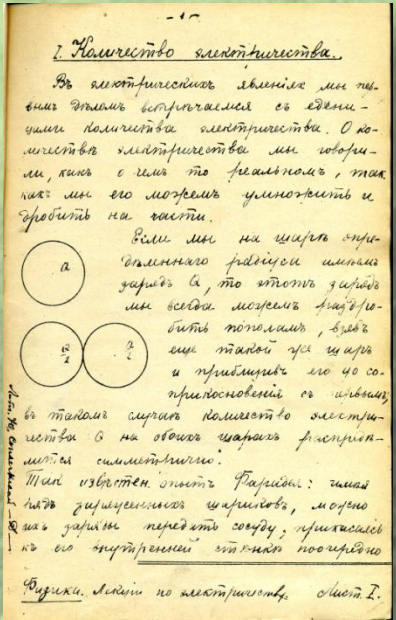 - 1 -
I. Количество электричества.
Въ электрическихъ явленіяхъ мы пер-
вымъ дѣломъ встрѣчаемся съ едени-
цами количества электричества. О ко-
личествѣ электричества мы говори-
ли, какъ о чемъ то реальномъ, такъ
какъ мы его можемъ умножить и
дробить на части.
Если мы на шарѣ опре-
дѣленнаго радіуса имѣемъ
зарядъ Q, то этотъ зарядъ
мы всегда можемъ раздро-
бить пополамъ, взявъ
еще такой же шаръ
и приблизивъ его до со-
прикосновенія съ первымъ;
въ такомъ случаѣ количество электри-
чества Q на обоихъ шарахъ распредѣ-
лится симметрично.
Такъ извѣстенъ опытъ Фарадея: имѣя
рядъ заряженныхъ шариковъ, можно
ихъ заряды передать сосуду, прикасаясь
къ его внутренней стѣнкѣ поочередно
Q
Q/2
Q/2
Физика. Лекціи по электричеству. Листъ I.